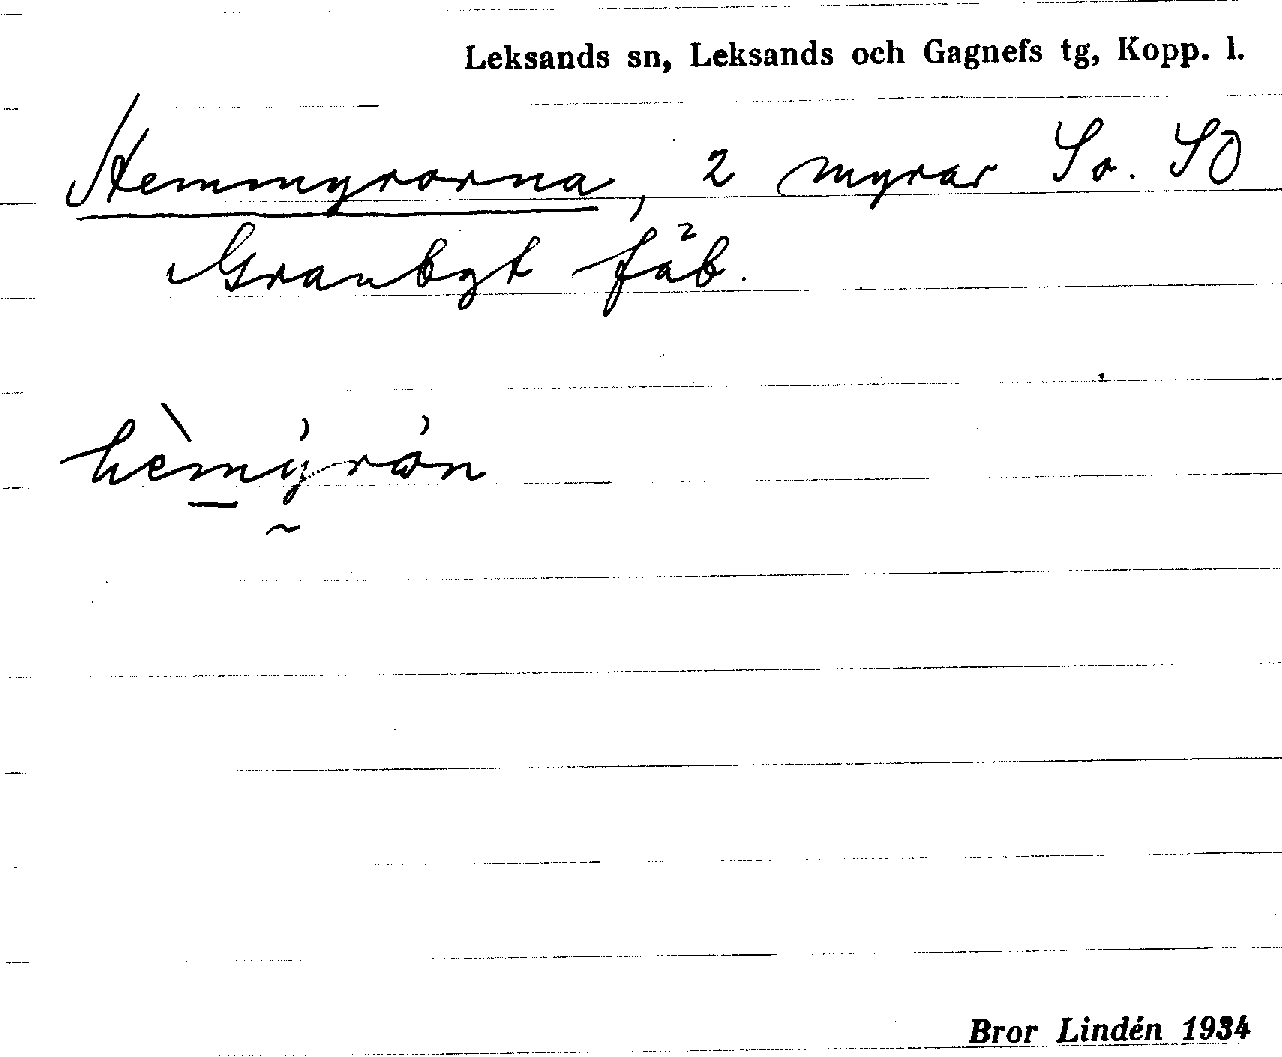 Leksands sn, Leksands och Gagnefs tg, Kopp. l.
Hemmyrorna, 2 myrar So. SO
Granbgt fäb.
hèmýrón
Bror Lindén 1934